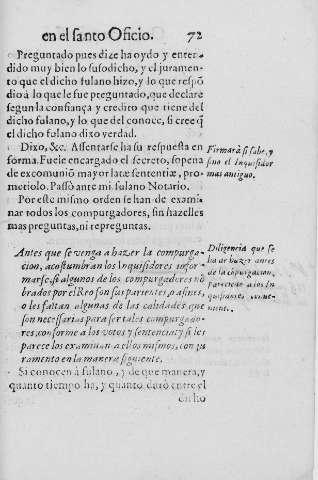 en el santo Oficio. 72
Preguntado pues dize ha oydo y enten-
dido muy bien lo susodicho, y el juramen-
to que el dicho fulano hizo, y lo que respõ
dio à lo que le fue preguntado, que declare
segun la confiança y credito que tiene del
dicho fulano, y lo que del conoce, si cree q̃
el dicho fulano dixo verdad.
Dixo, &c. Assentarse ha su respuesta en
forma. Fuele encargado el secreto, sopena
de excomuniõ mayor latæ sententiæ, pro-
metiolo. Passò ante mi fulano Notario.
Firmarà si sabe, y
sino el Inquisidor
mas antiguo.
Por este mismo orden se han de exami-
nar todos los compurgadores, sin hazelles
mas preguntas, ni repreguntas.
Antes que se venga a hazer la compurga-
cion, acostumbran los Inquisidores infor-
marse, si algunos de los compurgadores nõ
brados por el Reo son sus parientes, o afines,
o les faltan algunas de las calidades, que
son necessarias para ser tales compurgado-
res, conforme a los votos y sentencia: y si les
parece los examinan a ellos mismos, con ju
ramento en la manera siguiente.
Diligencia que se
ha de hazer antes
de la cõpurgacion,
pareciendo a los In
quisidores conue-
niente.
Si conocen à fulano, y de que manera, y
quanto tiempo ha, y quanto durò entre el
dicho